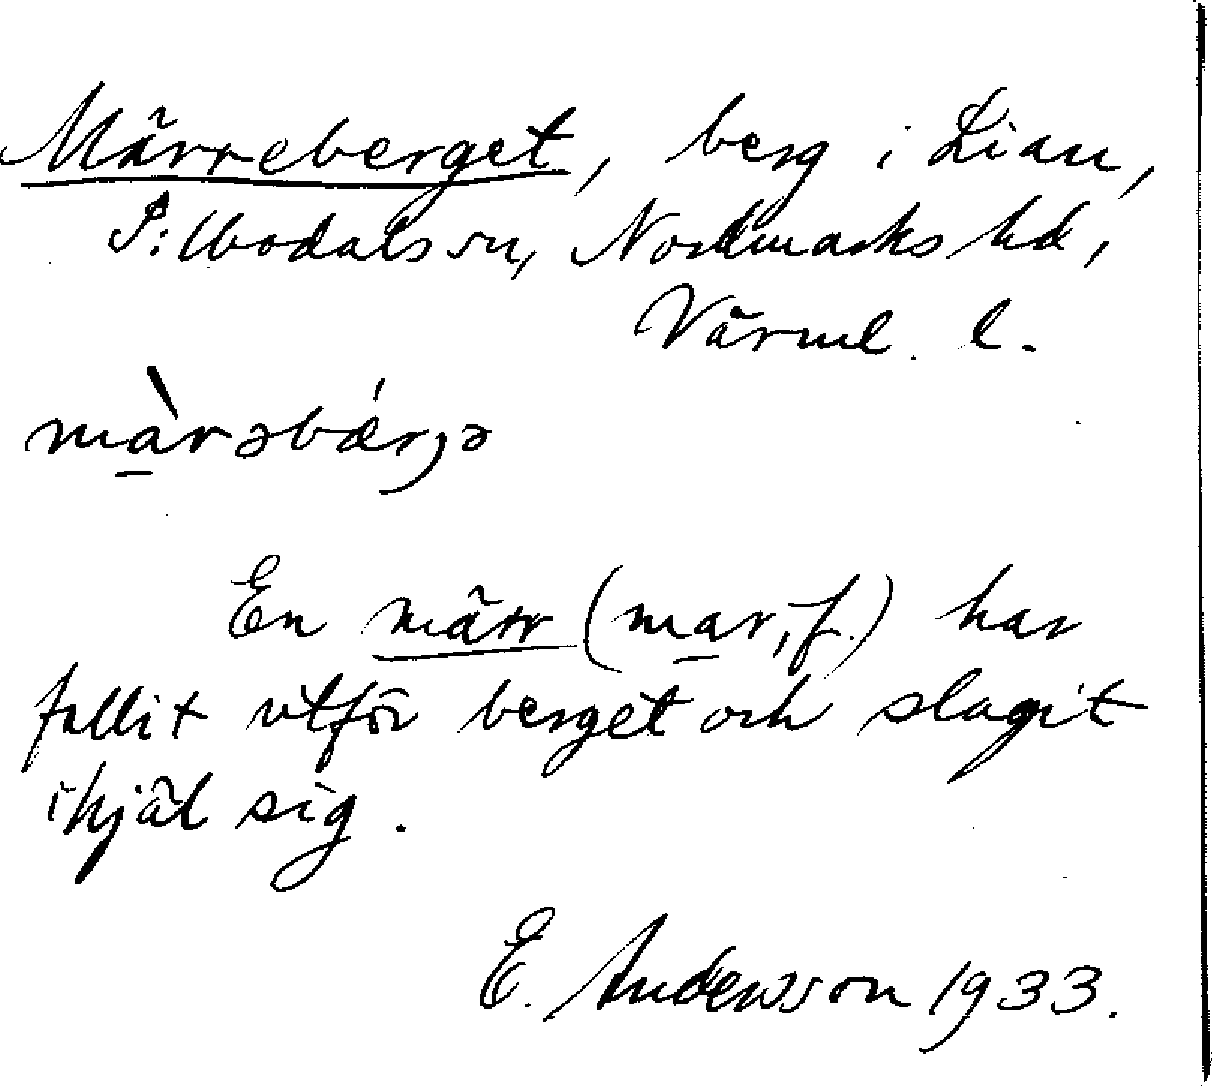 Märreberget, berg i Lian,
S:llbodals sn, Nordmarks hd,
Värml. l.
màrəbǽrjə
En märr (mar, f.) har
fallit utför berget och slagit
ihjäl sig.
E. Andersson 1933.